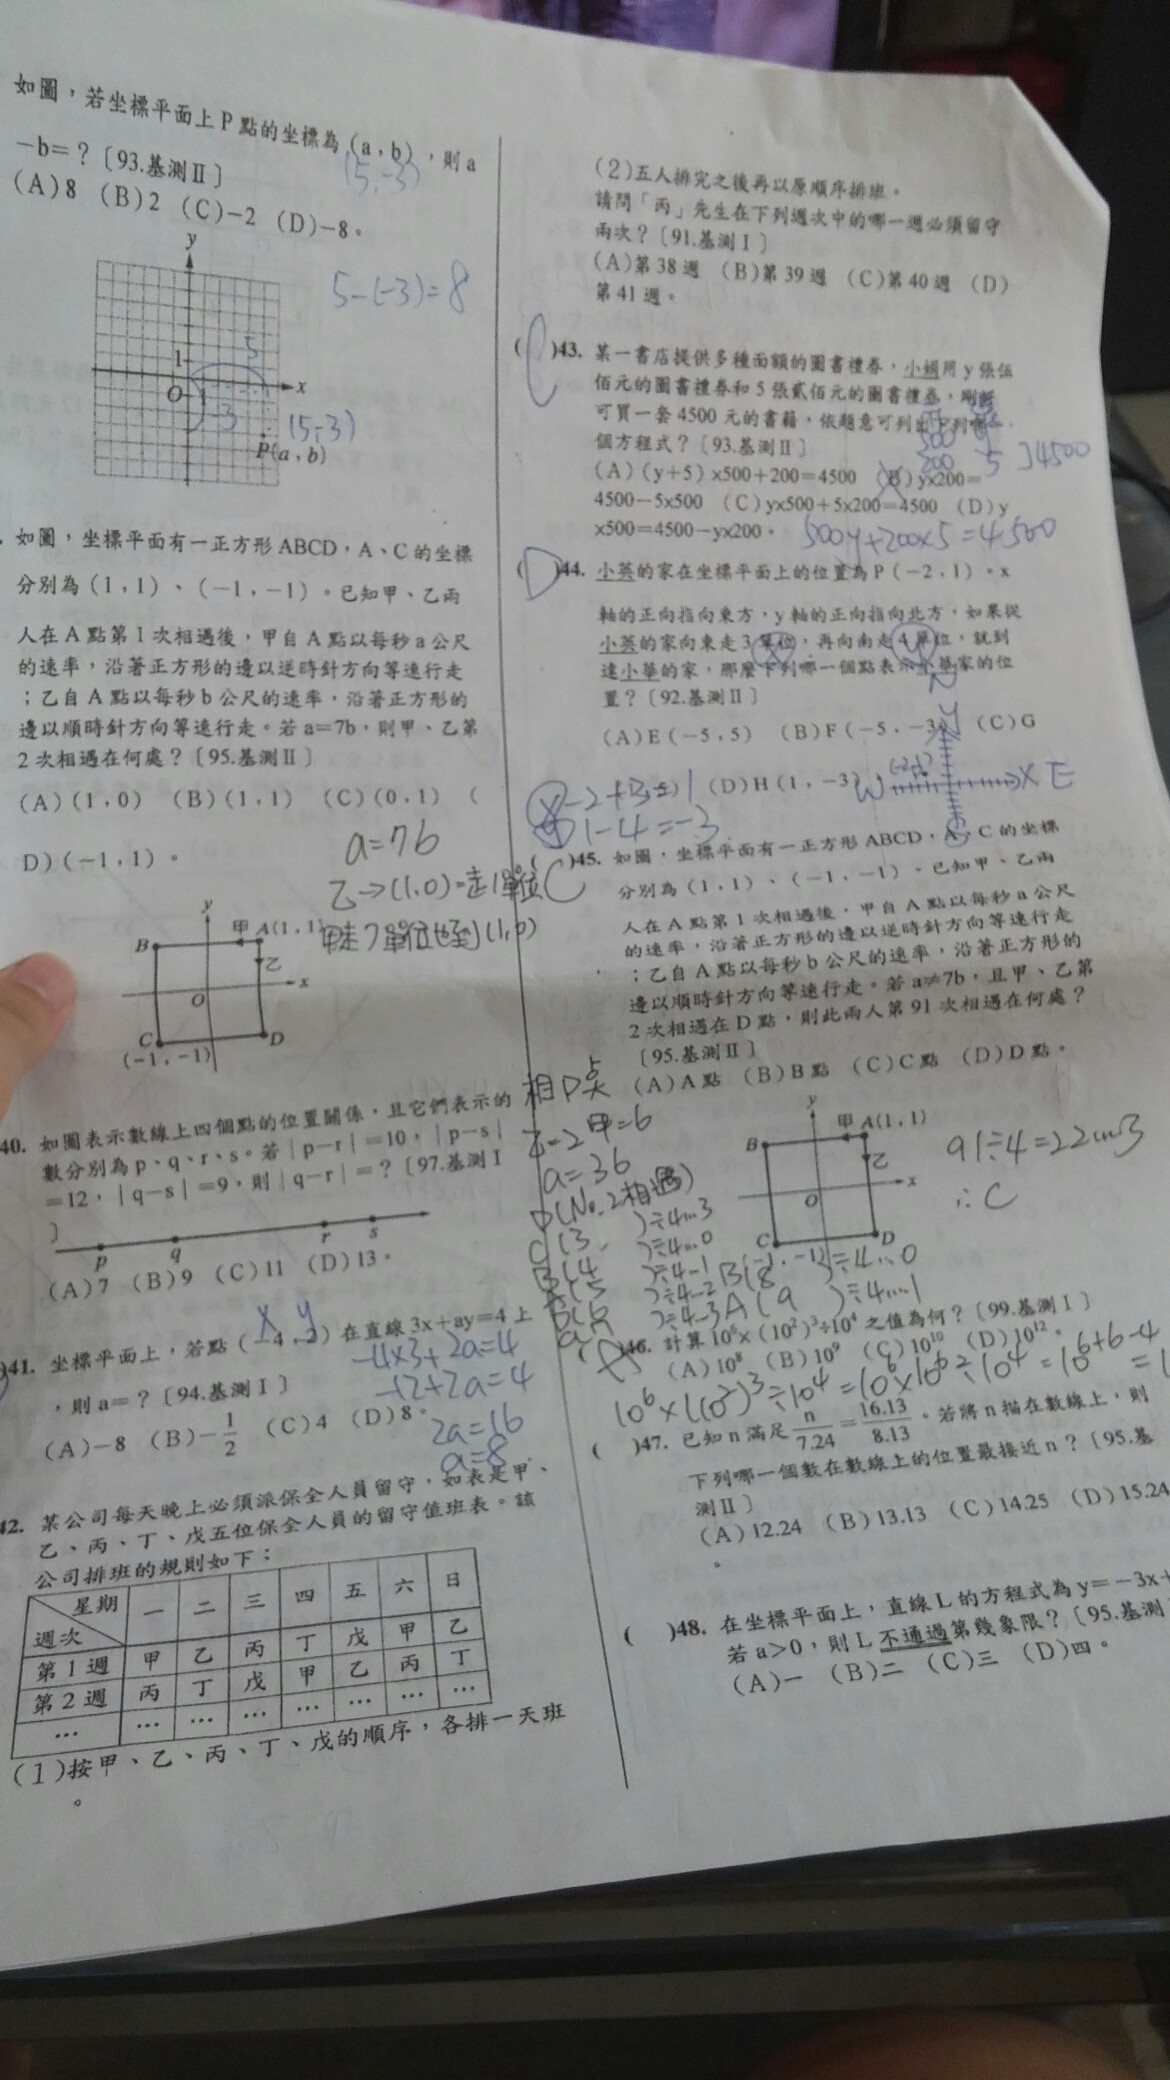 如圖，若坐標平面上P點的坐標為(a，b)，則a
(5,-3)
-b=？〔93.基測Ⅱ〕
(A)8 (B)2 (C)-2 (D)-8。
5-(-3)=8
y
1
5
O
1
x
3
(5,-3)
P(a，b)
如圖，坐標平面有一正方形ABCD，A、C的坐標
分別為(1，1)、(-1，-1)。已知甲、乙兩
人在A點第1次相遇後，甲自A點以每秒a公尺
的速率，沿著正方形的邊以逆時針方向等速行走
；乙自A點以每秒b公尺的速率，沿著正方形的
邊以順時針方向等速行走。若a=7b，則甲、乙第
2次相遇在何處？〔95.基測Ⅱ〕
(A)(1，0) (B)(1，1) (C)(0，1) (
D)(-1，1)。
a=7b
乙→(1,0)。走1單位
甲走7單位也到(1,0)
y
B
甲 A(1，1)
乙
O
x
C
(-1，-1)
D
40. 如圖表示數線上四個點的位置關係，且它們表示的
數分別為p、q、r、s。若|p-r|=10，|p-s|
=12，|q-s|=9，則|q-r|=？〔97.基測Ⅰ
〕
p q r s
(A)7 (B)9 (C)11 (D)13。
x y
)41. 坐標平面上，若點(-4，2)在直線3x+ay=4上
-4×3+2a=4
，則a=？〔94.基測Ⅰ〕
-12+2a=4
(A)-8 (B)-1/2 (C)4 (D)8。
2a=16
a=8
42. 某公司每天晚上必須派保全人員留守，如表是甲、
乙、丙、丁、戊五位保全人員的留守值班表。該
公司排班的規則如下：
星期 一 二 三 四 五 六 日
週次
第1週 甲 乙 丙 丁 戊 甲 乙
第2週 丙 丁 戊 甲 乙 丙 丁
… … … … … … … …
(1)按甲、乙、丙、丁、戊的順序，各排一天班
。
(2)五人排完之後再以原順序排班。
請問「丙」先生在下列週次中的哪一週必須留守
兩次？〔91.基測Ⅰ〕
(A)第38週 (B)第39週 (C)第40週 (D)
第41週。
( )43. 某一書店提供多種面額的圖書禮券，小娟用y張伍
佰元的圖書禮券和5張貳佰元的圖書禮券，剛好
可買一套4500元的書籍，依題意可列出下列哪一
500
個方程式？〔93.基測Ⅱ〕
200 5 ]4500
(A)(y+5)x500+200=4500 (B)yx200=
4500-5x500 (C)yx500+5x200=4500 (D)y
x500=4500-yx200。
500y+200×5=4500
(D)44. 小英的家在坐標平面上的位置為P(-2，1)。x
軸的正向指向東方，y軸的正向指向北方，如果從
小英的家向東走3單位，再向南走4單位，就到
達小華的家，那麼下列哪一個點表示小華家的位
置？〔92.基測Ⅱ〕
(A)E(-5，5) (B)F(-5，-3) (C)G
(D)H(1，-3)
N
Y
W
X E
x -2+3=1
y 1-4=-3
( )45. 如圖，坐標平面有一正方形ABCD，A、C的坐標
C
分別為(1，1)、(-1，-1)。已知甲、乙兩
人在A點第1次相遇後，甲自A點以每秒a公尺
的速率，沿著正方形的邊以逆時針方向等速行走
；乙自A點以每秒b公尺的速率，沿著正方形的
邊以順時針方向等速行走。若a≠7b，且甲、乙第
2次相遇在D點，則此兩人第91次相遇在何處？
〔95.基測Ⅱ〕
(A)A點 (B)B點 (C)C點 (D)D點。
相D点
乙=2 甲=6
a=3b
D(No.2相遇)
C(3 )÷4…3
B(4 )÷4…0
)÷4…1
)÷4…2
)÷4…3
B(8 )÷4…0
A(9 )÷4…1
y
B
甲 A(1，1)
乙
O
x
C
D
(-1，-1)
91÷4=22…3
∴C
( )46. 計算10⁶x(10²)³÷10⁴之值為何？〔99.基測Ⅰ〕
(A)10⁸ (B)10⁹ (C)10¹⁰ (D)10¹²。
10⁶×(10²)³÷10⁴=10⁶×10⁶÷10⁴=10⁶⁺⁶⁻⁴
( )47. 已知n滿足n/7.24=16.13/8.13。若將n描在數線上，則
下列哪一個數在數線上的位置最接近n？〔95.基
測Ⅱ〕
(A)12.24 (B)13.13 (C)14.25 (D)15.24
。
( )48. 在坐標平面上，直線L的方程式為y=-3x+
若a>0，則L不通過第幾象限？〔95.基測
(A)一 (B)二 (C)三 (D)四。